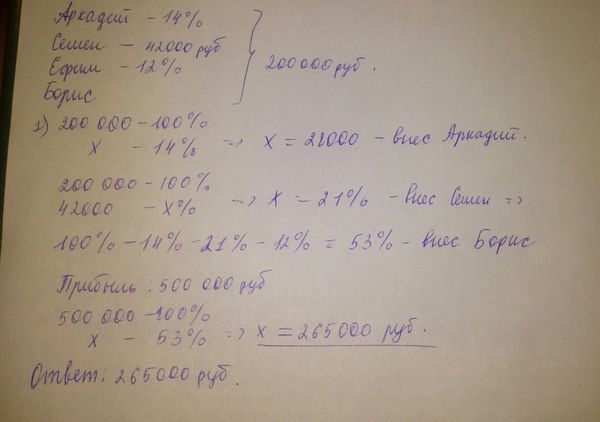 Аркадий - 14%
Семен - 42000 руб
Ефим - 12%
Борис
200000 руб.
1) 200 000 - 100%
x - 14% => x = 28000 - внес Аркадий.
200 000 - 100%
42000 - x% => x - 21% - внес Семен =>
100% - 14% - 21% - 12% = 53% - внес Борис
Прибыль: 500 000 руб
500 000 - 100%
x - 53% => x = 265000 руб.
Ответ: 265000 руб.